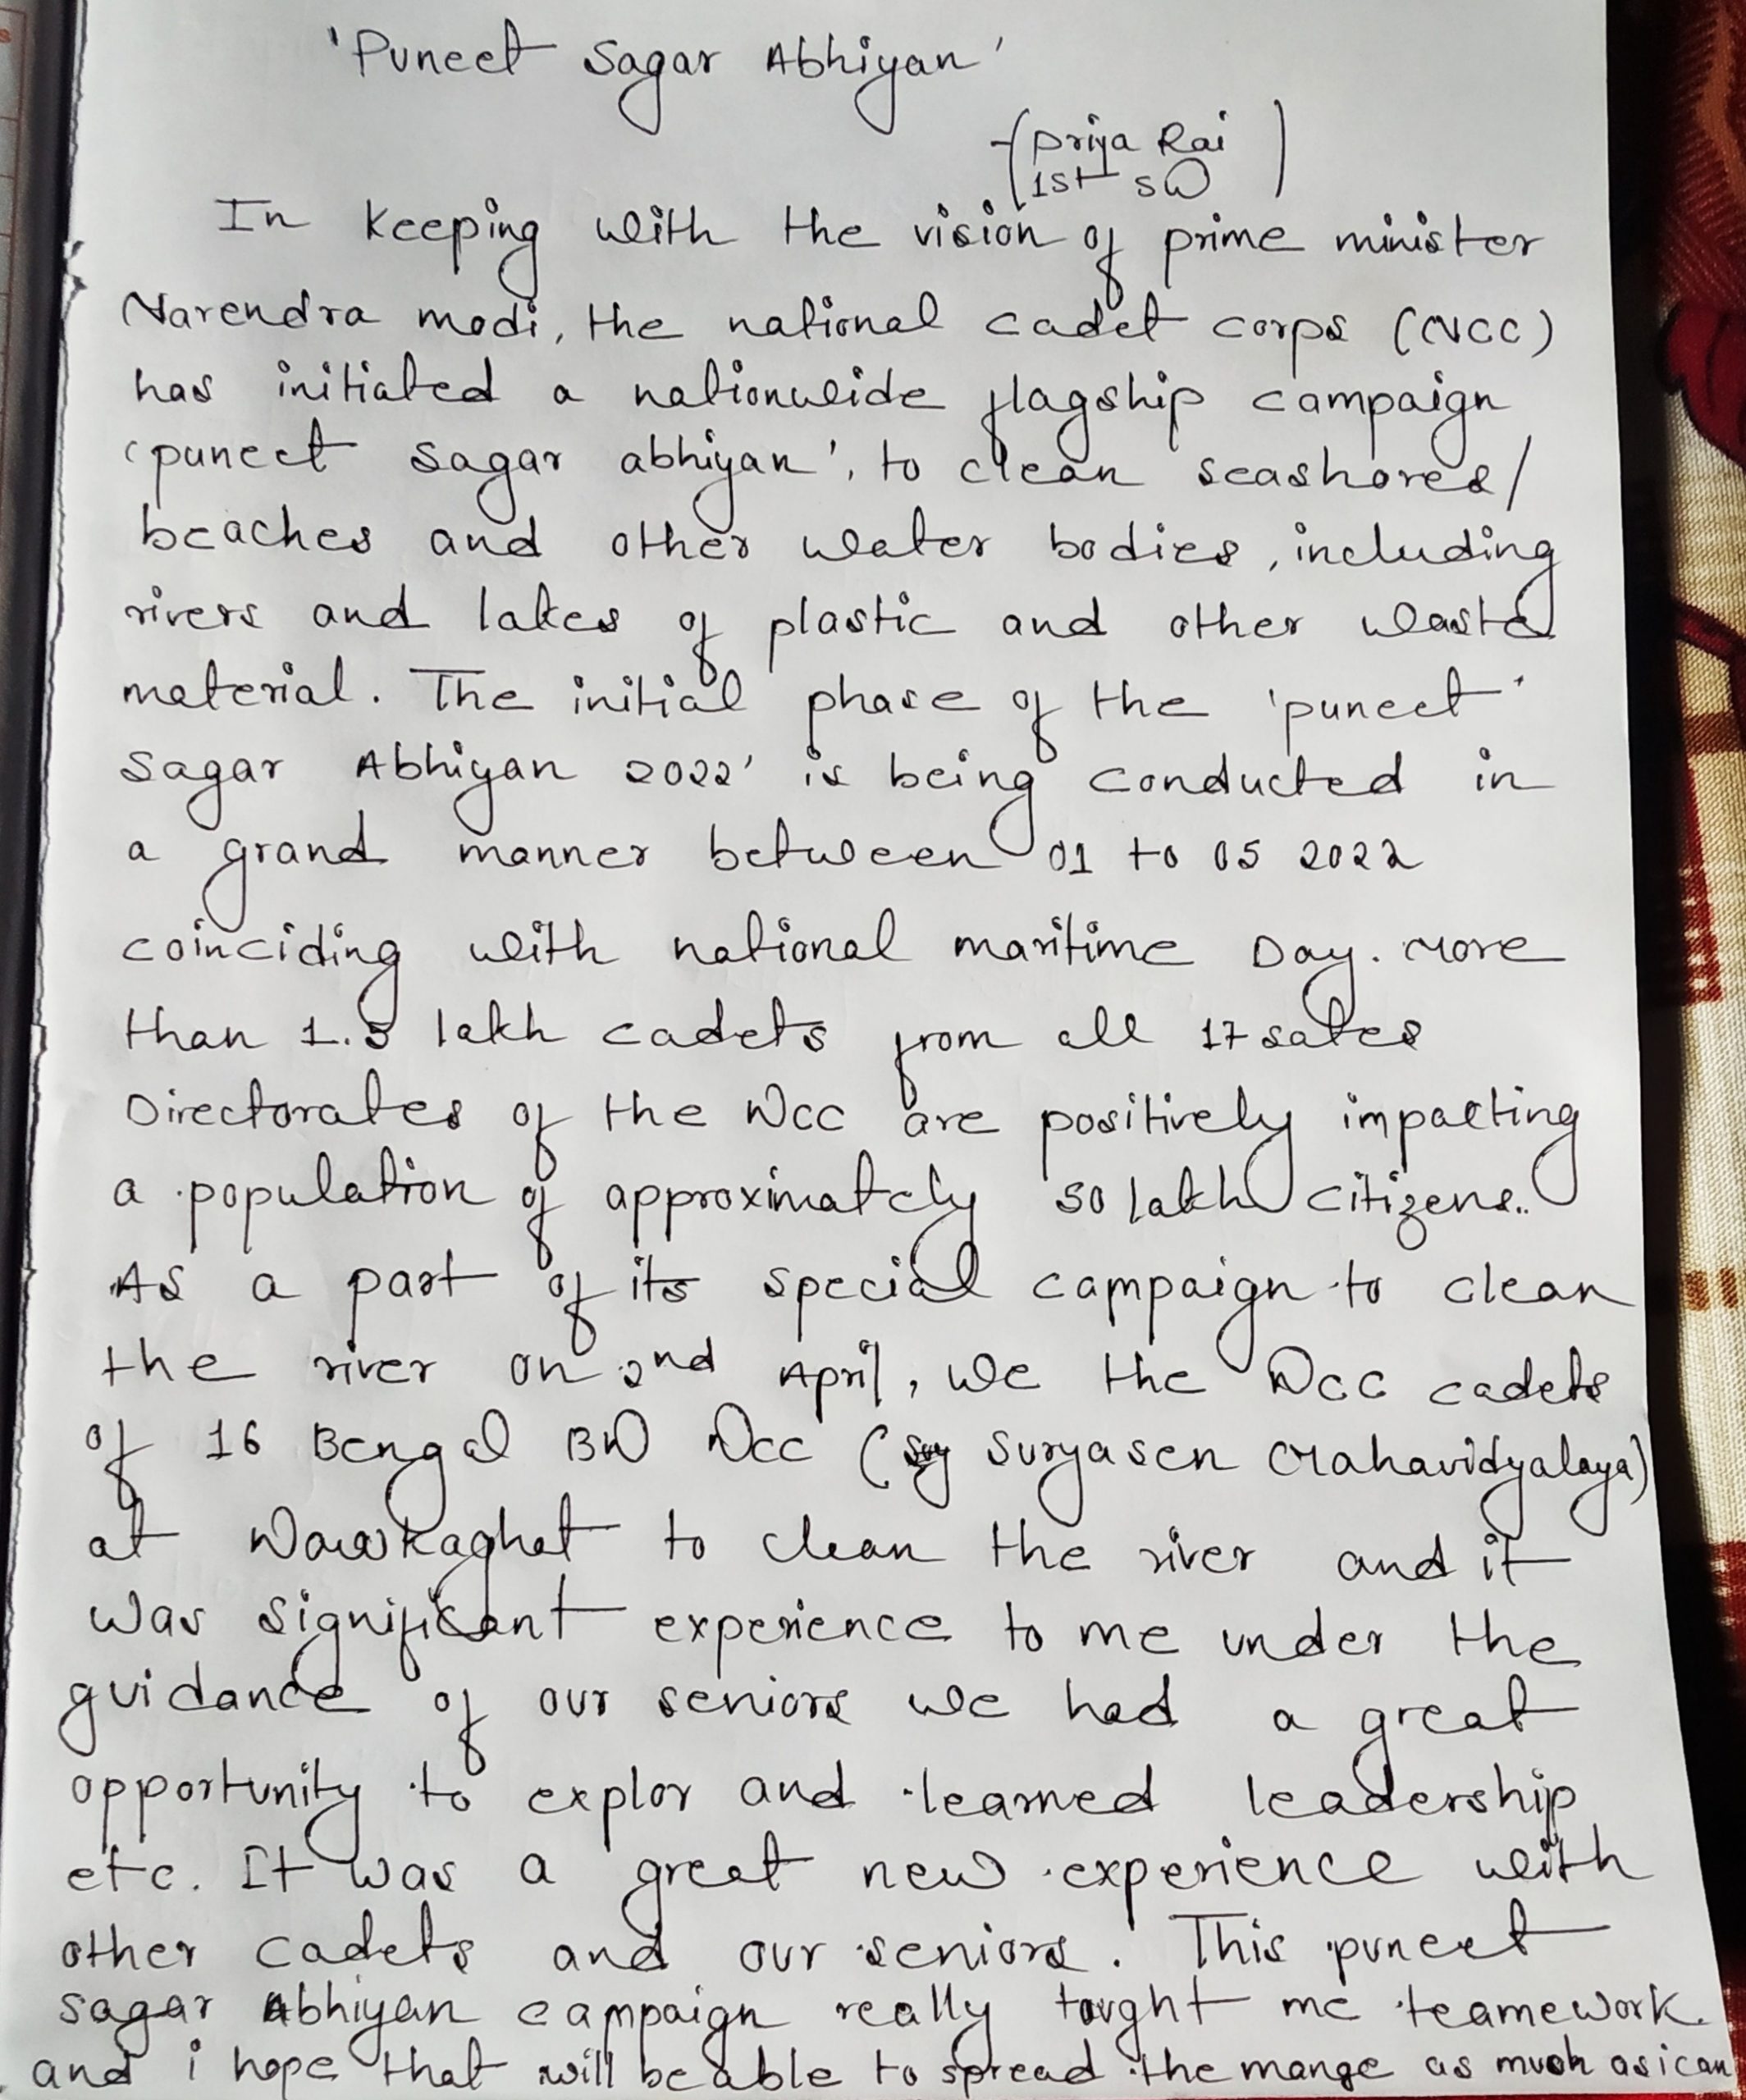 'Puneet Sagar Abhiyan'
-(Priya Rai
1st SW)
In keeping with the vision of prime minister
Narendra modi, the national cadet corps (NCC)
has initiated a nationwide flagship campaign
'puneet sagar abhiyan', to clean seashores/
beaches and other water bodies, including
rivers and lakes of plastic and other waste
material. The initial phase of the 'puneet'
Sagar Abhiyan 2022' is being conducted in
a grand manner between 01 to 05 2022
coinciding with national maritime Day. More
than 1.5 lakh cadets from all 17 sates
Directorates of the NCC are positively impacting
a population of approximately 50 lakh citizens..
As a part of its special campaign to clean
the river on 2nd April, We the NCC cadets
of 16 Bengal BN NCC (Suryasen Mahavidyalaya)
at Nawkaghat to clean the river and it
was significant experience to me under the
guidance of our seniors we had a great
opportunity to explor and learned leadership
etc. It was a great new experience with
other cadets and our seniors. This puneet
sagar Abhiyan campaign really tought me teamework.
and i hope that will be able to spread the mange as much as i can